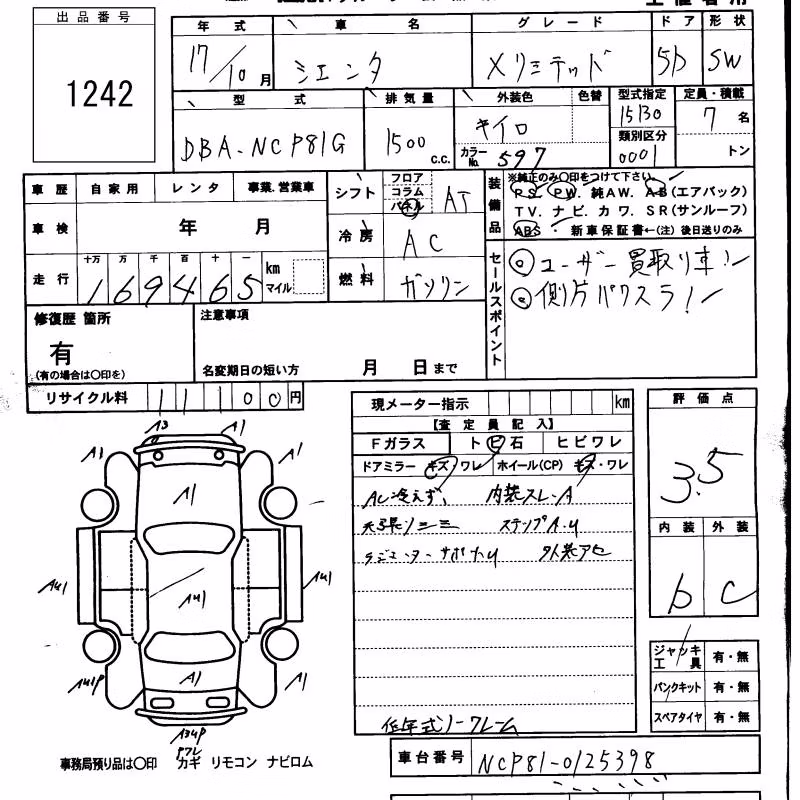 出品番号
1242
年式 車名 グレード ドア 形状
17/10月 シエンタ Xリミテッド 5D SW
型式 排気量 外装色 色替 型式指定 定員・積載
DBA-NCP81G 1500 c.c. キイロ 15130 7名
カラーNo. 597 類別区分 0001 トン
車歴 自家用 レンタ 事業.営業車
車検 年 月
走行 十万 万 千 百 十 一 km マイル
169465
シフト フロア コラム パネル AT
冷房 AC
燃料 ガソリン
装備品
※純正のみ○印をつけて下さい。
PS. PW. 純AW. AB(エアバック)
TV. ナビ. カワ. SR(サンルーフ)
ABS ・ 新車保証書←(注) 後日送りのみ
セールスポイント
◎ユーザー買取り車!
◎側片パワスラ!
修復歴 箇所
有
(有の場合は○印を)
注意事項
名変期日の短い方 月 日まで
リサイクル料 11100円
現メーター指示 km
【査定員記入】
Fガラス トビ石 ヒビワレ
ドアミラー キズ・ワレ ホイール(CP) キズ・ワレ
AC冷えず、 内装スレ・A
天張りシミ ステップA.U
ラジエーターサポートU 外装アセ
低年式ノークレーム
評価点
3.5
内装 外装
b C
ジャッキ工具 有・無
パンクキット 有・無
スペアタイヤ 有・無
A3 A1
A1 A1
A1
AU1 AU1 AU1
A1
AU1P A1
A3UP
ワレ
事務局預り品は○印 カギ リモコン ナビロム
車台番号 NCP81-0125398